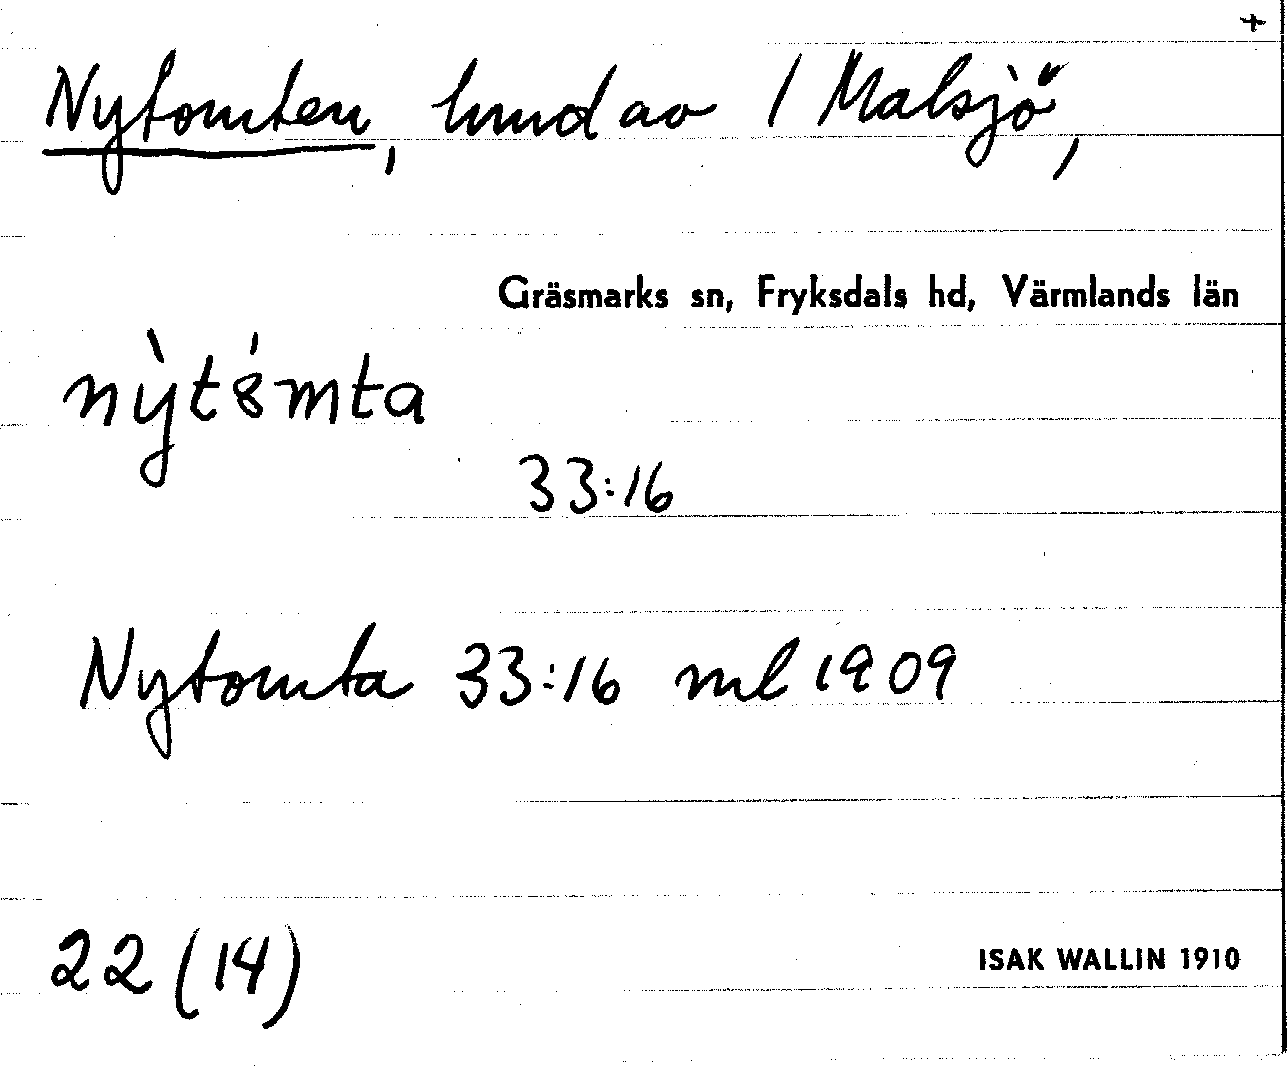 +
Nytomten, hmd av 1 Malsjö,
Gräsmarks sn, Fryksdals hd, Värmlands län
nỳtȣ́mta
33:16
Nytomta 33:16 ml 1909
22 (14)
ISAK WALLIN 1910